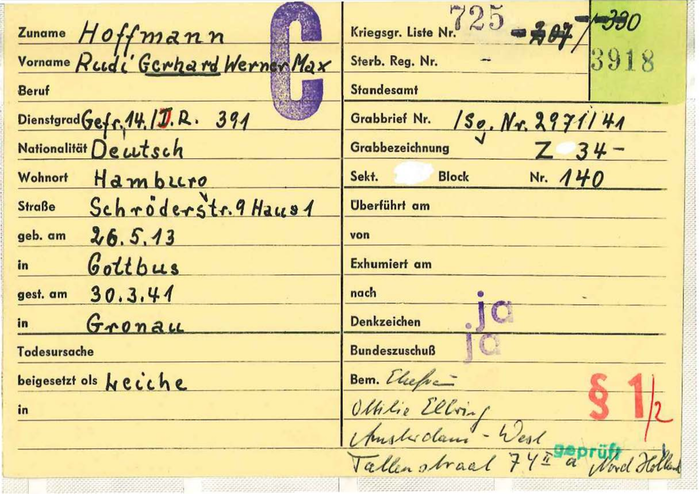 C
Zuname Hoffmann
Vorname Rudi Gerhard Werner Max
Beruf
Dienstgrad Gefr. 14./I.R. 391
Nationalität Deutsch
Wohnort Hamburg
Straße Schröderstr. 9 Haus 1
geb. am 26.5.13
in Cottbus
gest. am 30.3.41
in Gronau
Todesursache
beigesetzt als Leiche
in
Kriegsgr. Liste Nr. 725
3918
Sterb. Reg. Nr. -
Standesamt
Grabbrief Nr. /So, Nr. 2971/41
Grabbezeichnung Z 34-
Sekt. Block Nr. 140
Überführt am
von
Exhumiert am
nach
Denkzeichen ja
Bundeszuschuß ja
Bem. Ehefrau
§ 1/2
Ottilie Ellring
Amsterdam - West
geprüft
Tallenstraat 74 II a Nord Holland